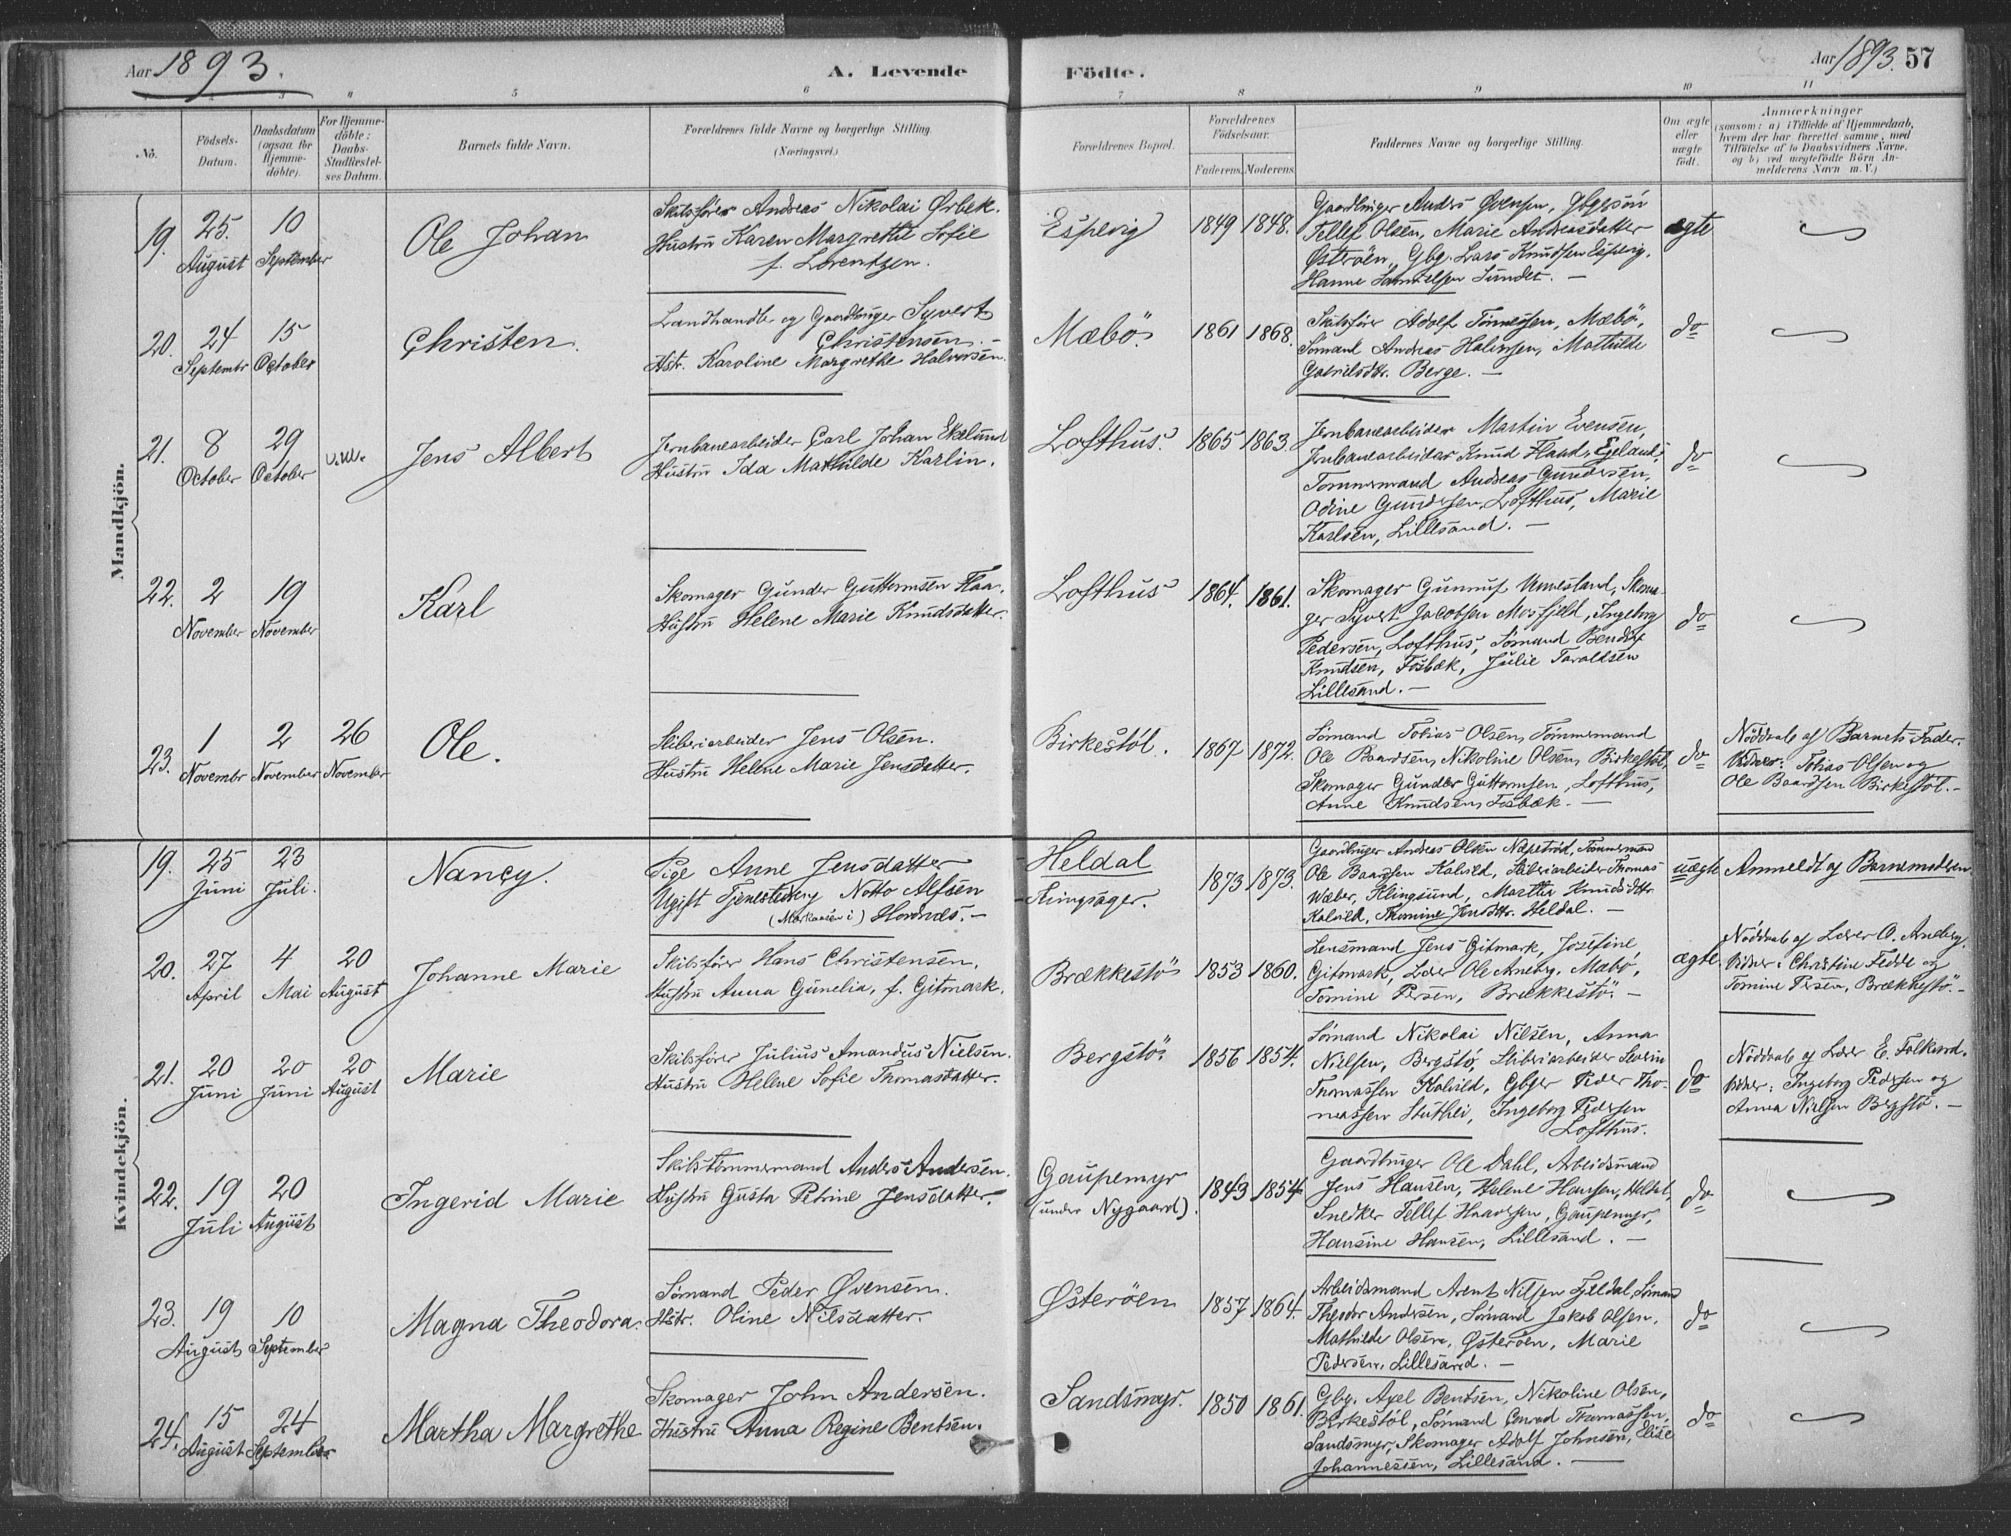 Aar 1893.
A. Levende Födte.
Aar 1893. 57
1 2 3 4 5 6 7 8 9 10 11
No.
Födsels-Datum.
Daabsdatum (ogsaa for Hjemme-döbte).
For Hjemme-döbte: Daabs-Stadfæstel-ses Datum.
Barnets fulde Navn.
Forældrenes fulde Navne og borgerlige Stilling. (Næringsvei.)
Forældrenes Bopæl.
Forældrenes Födselsaar.
Faderens. Moderens.
Faddernes Navne og borgerlige Stilling.
Om ægte eller uægte födt.
Anmærkninger
(saasom: a) i Tilfælde af Hjemmedaab,
hvem der har forrettet samme, med
Tilföielse af to Daabsvidners Navne,
og b) ved uægtefödte Börn An-
melderens Navn m. V.)
Mandkjön.
19. 25. August 10 September
Ole Johan
Skibsfører Andreas Nikolai Ørbek.
Hustru Karen Margrethe Sofie
f. Lorentzen.
Espevig
1849 1848.
Gaardbruger Anders Evensen, Gbgersøn
Tellef Olsen, Marie Andreasdatter
Østerøen, Gbg. Lars Knudsen Espevig,
Hanne Samuelsen Sundet. —
ægte
20. 24 Septembr 15 October
Christen.
Landhandler og Gaardbruger Syvert
Christensen. —
Hstr. Karoline Margrethe Halvorsen.
Mæbö.
1861 1868.
Skibsfører Adolf Tønnessen, Mæbö,
Sømand Andreas Halvorsen, Mathilde
Gabrielsdtr. Berge. —
do
21. 8 October 29 October
Jens Albert
Jernbanearbeider Carl Johan Ekelund
Hustru Ida Mathilde Karlin.
Lofthus.
1865 1863.
Jernbanearbeider Martin Evensen,
Jernbanearbeider Knud Fland, Egeland,
Tømmermand Andreas Gundersen,
Odine Gundersen, Lofthus, Marie
Karlsen, Lillesand. —
do
22. 2 November 19 November
Karl
Skomager Gunder Guttormsen Flaa.
Hustru Helene Marie Knudsdatter.
Lofthus
1864. 1861.
Skomager Gunnuf Unnesland, Skoma-
ger Syvert Jacobsen Mosfjeld, Ingeborg
Pedersen, Lofthus, Sømand Bendix
Knudsen, Fosbæk, Julie Taraldsen
Lillesand. —
do
23. 1 Novembr 2 November 26 November
Ole.
Sliberiarbeider Jens Olsen.
Hustru Helene Marie Jensdatter.
Birkestöl.
1867 1872.
Sømand Tobias Olsen, Tømmermand
Ole Baardsen, Nikoline Olsen, Birkestöl,
Skomager Gunder Guttormsen, Lofthus,
Anne Knudsen, Fosbæk. —
do
Nöddaab af Barnets Fader.
Vidner: Tobias Olsen og
Ole Baardsen Birkestöl. —
Kvindekjön.
19. 25 Juni 23 Juli.
Nancy.
Pige Anne Jensdatter
Ugift Notto Alfsen
Hornnes. —
Heldal
Ringsager.
1873 1873.
Gaardbruger Andreas Olsen Tømmermand
Ole Baardsen Kalvild, Sliberiarbeider Thomas
Wæber, Klingsund, Marthe Knudsdtr.
Kalvild, Thomine Jensdtr. Heldal. —
uægte
Anmeldt af Barnemoderen
20. 27 April 4 Mai 20 August
Johanne Marie
Skibsfører Hans Christensen.
Hustru Anna Gunelia, f. Gitmark.
Brækkestö
1853 1860.
Lensmand Jens Gitmark, Josefine
Gitmark, Lærer Ole Aneberg, Mæbö,
Tomine Persen, Brækkestö. —
ægte
Nöddaab af Lærer O. Aneberg.
Vidner: Christine Fedde og
Tomine Persen, Brækkestö. —
21. 20 Juni 20 Juni 20 August
Marie
Skibsfører Julius Amandus Nielsen.
Hustru Helene Sofie Thomasdatter.
Bergstö
1856 1854.
Sømand Nikolai Nilsen, Anna
Nielsen, Bergstö, Sliberiarbeider Severin
Thomassen Kalvild, Gbger Peder Tho-
massen Stuthei, Ingeborg Pedersen
Lofthus.
do
Nöddaab af Lærer E. Falkund.
Vidner: Ingeborg Pedersen og
Anna Nielsen Bergstö. —
22. 19 Juli 20 August
Ingerid Marie
Skibstømmermand Anders Andersen.
Hustru Gusta Petrine Jensdatter.
Gaupemyr
(under Nygaard).
1843 1854
Gaardbruger Ole Dahl, Arbeidsmand
Jens Hansen, Helene Hansen, Heldal,
Snekker Tellef Haavorsen, Gaupemyr,
Hansine Hansen, Lillesand. —
do
23. 19 August 10 September
Magna Theodora.
Sømand Peder Øvensen.
Hstr. Oline Nilsdatter.
Østerøen
1857 1864.
Arbeidsmand Arent Nilsen Fjeldal, Sømand
Theodor Andersen, Sømand Jakob Olsen,
Mathilde Olsen, Østerøen, Marie
Pedersen, Lillesand. —
do
24. 15 August 24 September
Martha Margrethe
Skomager John Andersen.
Hustru Anna Regine Bentsen.
Sandsmyr.
1850 1861.
Gbg. Axel Bentsen, Nikoline Olsen,
Birkestöl, Sømand Conrad Thomassen,
Sandsmyr, Skomager Adolf Johnsen, Elise
Johannessen, Lillesand. —
do